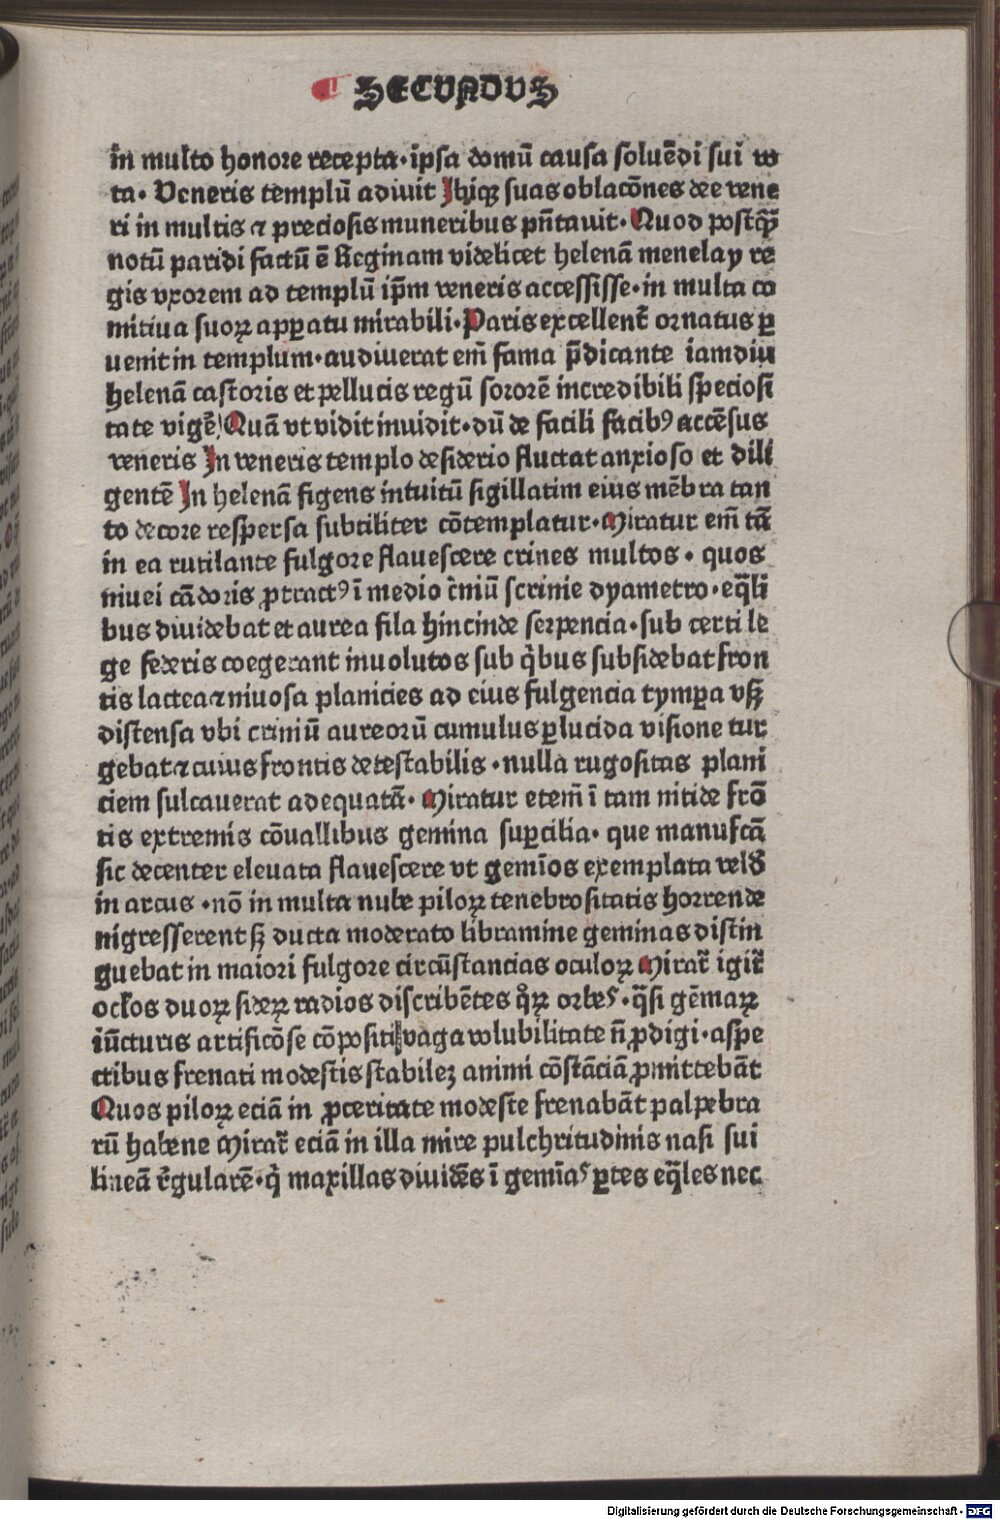 SECVNDVS
in multo honore recepta· ipsa domū causa soluēdi sui vo
ta· Veneris templū adiuit Ibiqꝫ suas oblacōnes dee vene
ri in multis ⁊ preciosis muneribus pn̄tauit· Quod postqꝫ̄
notū paridi factū ē Reginam videlicet helenā menelay re
gis vxorem ad templū ip̄m veneris accessisse· in multa co
mitiua suoꝝ apꝑatu mirabili· Paris excellent̄ ornatus ꝑ
uenit in templum· audiuerat em̄ fama p̄dicante iamdiu
helenā castoris et pellucis regū sororē incredibili speciosi
tate vigē̄ Quā vt vidit inuidit· dū de facili facibꝰ accēsus
veneris In veneris templo desiderio fluctat anxioso et dili
gentē In helenā figens intuitū sigillatim eius mēbra tan
to decore respersa subtiliter cōtemplatur· Miratur em̄ tā
in ea rutilante fulgore flauescere crines multos· quos
niuei cādoris ꝓtractꝰ ī medio c̄niū scrinie dyametro· eq̄li
bus diuidebat et aurea fila hincinde serpencia· sub certi le
ge federis coegerant inuolutos sub q̇bus subsidebat fron
tis lactea ⁊ niuosa planicies ad eius fulgencia tymꝑa vsqꝫ
distensa vbi criniū aureorū cumulus ꝑlucida visione tur
gebat ⁊ cuius frontis detestabilis· nulla rugositas plani
ciem sulcauerat adequatā· Miratur etem̄ ī tam nitide frō
tis extremis cōuallibus gemina suꝑcilia· que manufcā
sic decenter eleuata flauescere vt gemīos exemplata vel8
in arcus· nō in multa nube piloꝝ tenebrositatis horrende
nigresserent sꝫ ducta moderato libramine geminas distin
guebat in maiori fulgore circūstancias oculoꝝ Mirat̄ igit̄
oclos duoꝝ sideꝝ radios discribētes qͦꝝ orbes· q̄si gēmaꝝ
iūcturis artificōse cōpositi vaga volubilitate n̄ ꝓdigi· aspe
ctibus frenati modestis stabilez animi cōstāciā ꝓmittebāt
Quos piloꝝ eciā in ꝓceritate modeste frenabāt palpebra
rū habene Mirat̄ eciā in illa mire pulchritudinis nasi sui
lineā r̄gularē· q̇ maxillas diuidēs ī gemīas ꝑtes eq̄les nec
Digitalisierung gefördert durch die Deutsche Forschungsgemeinschaft - DFG